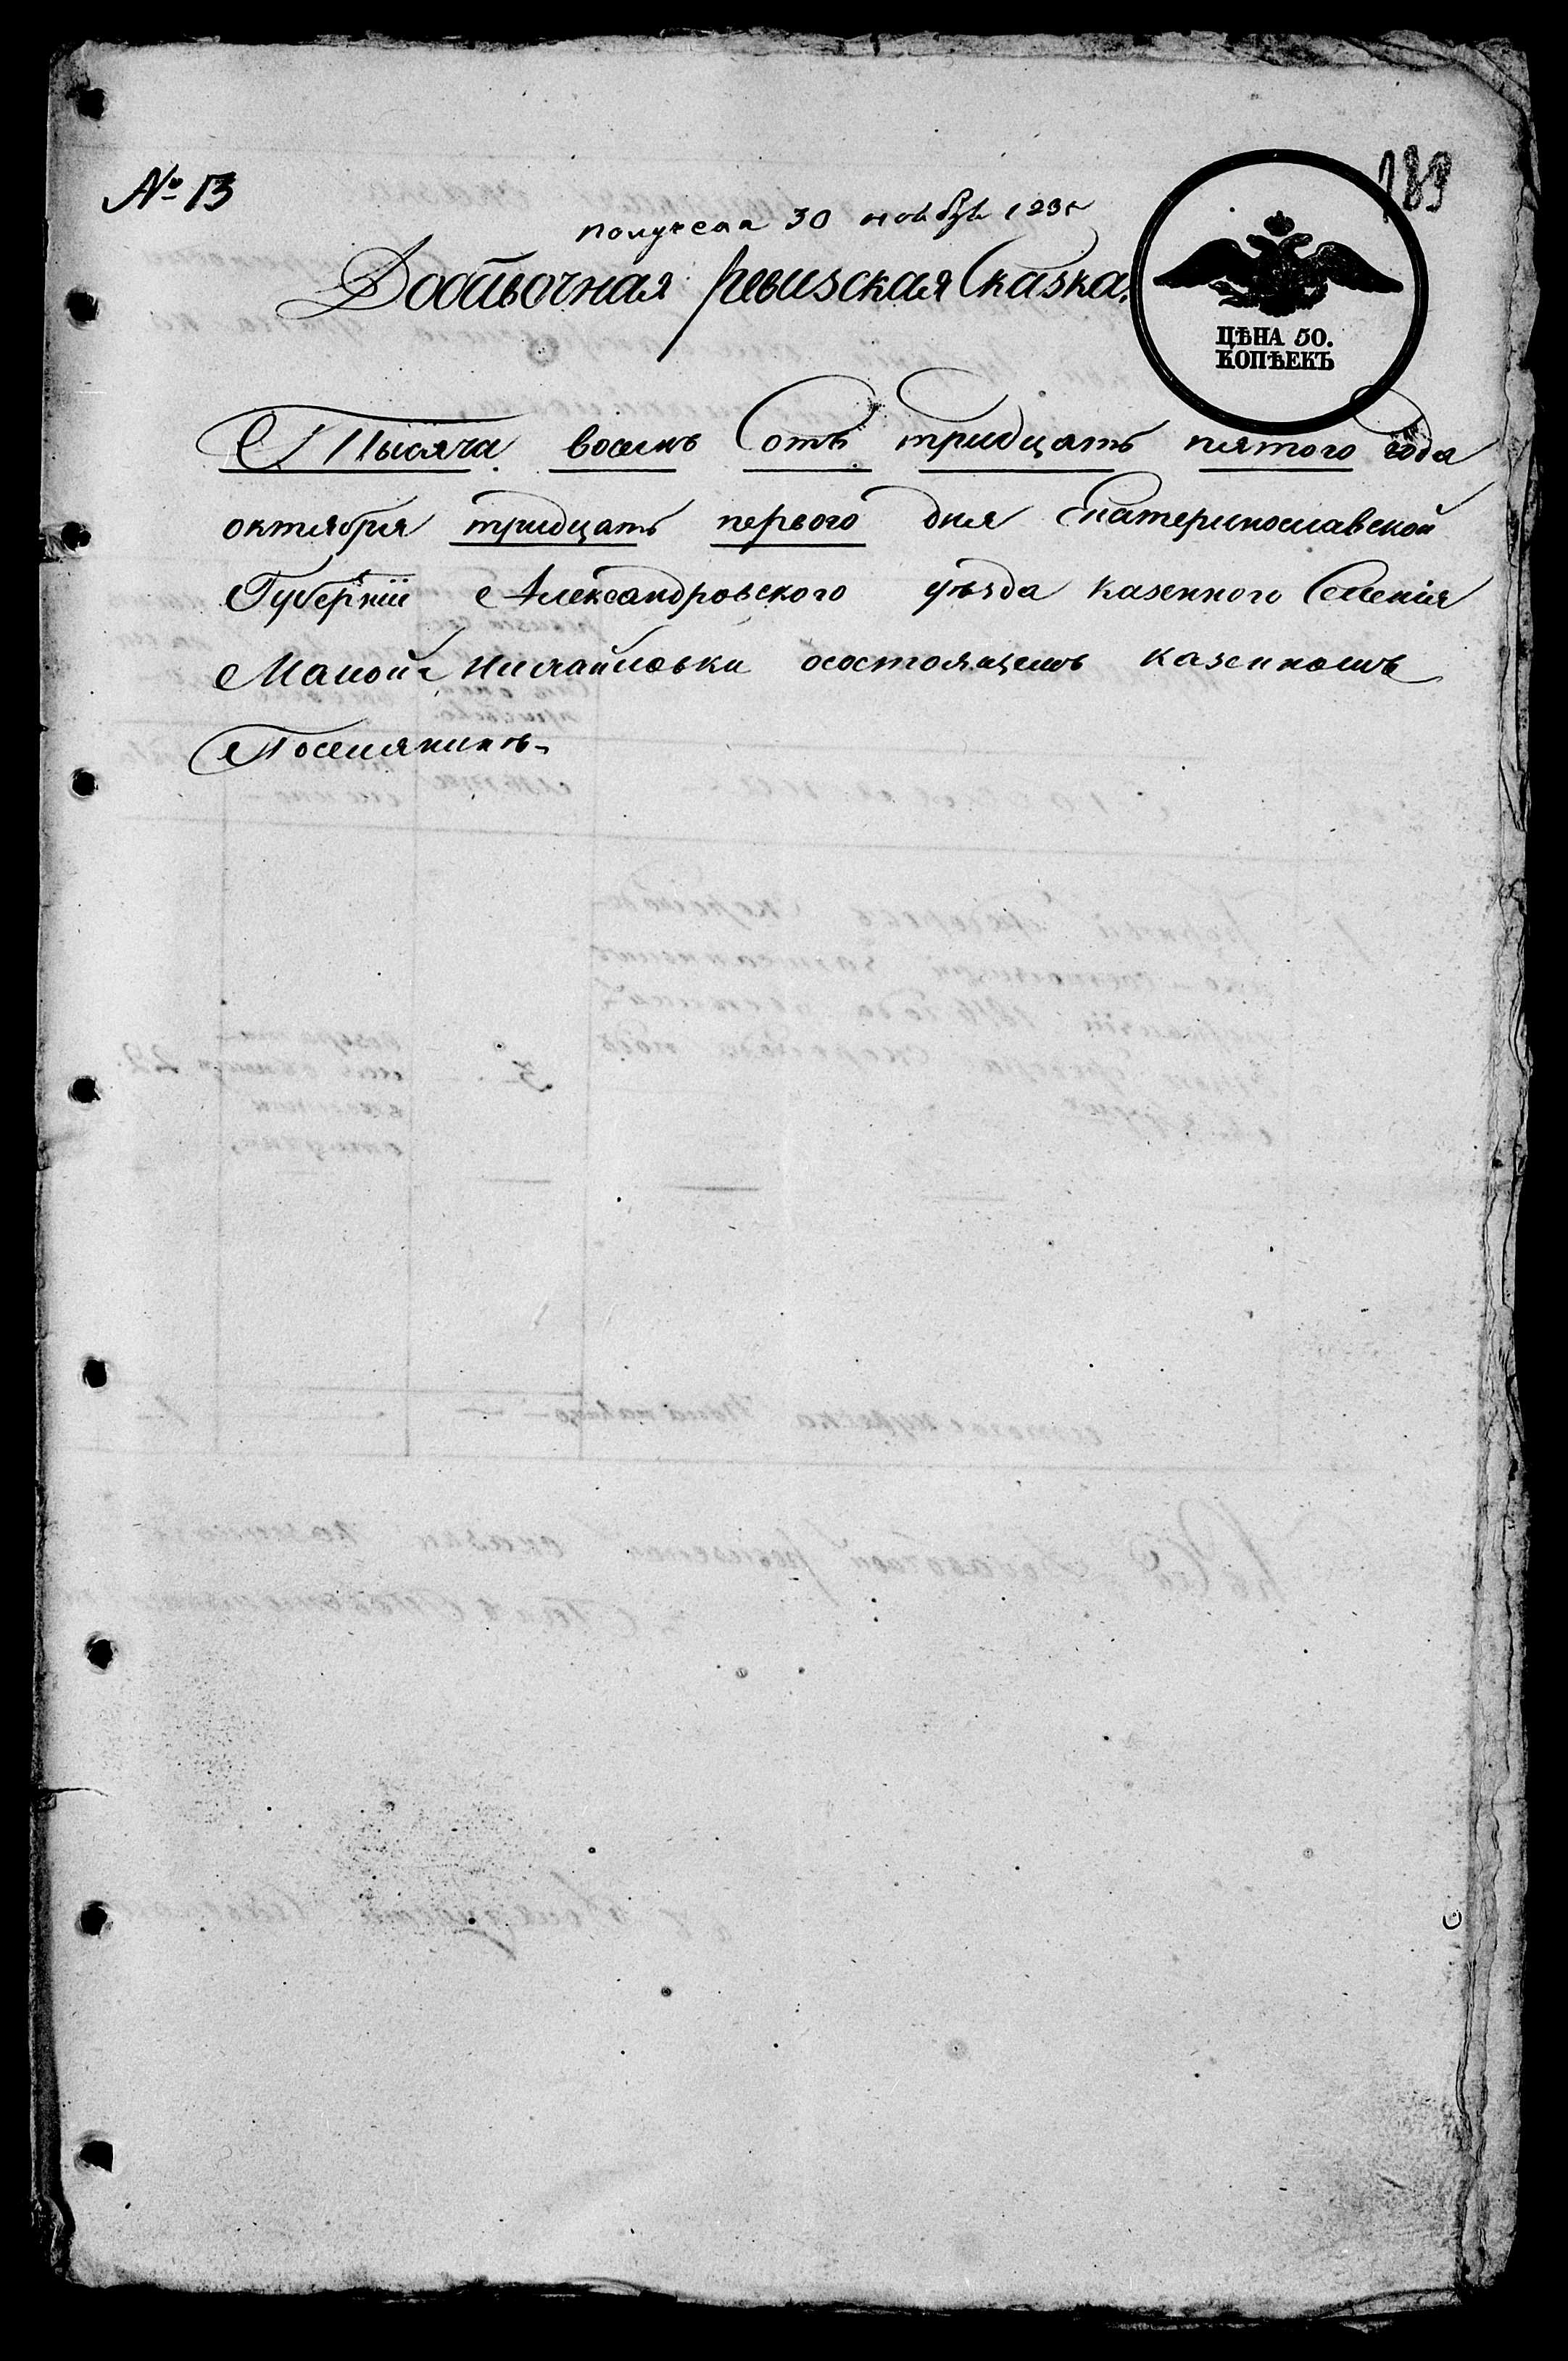 № 13
189
получена 30 ноября 1835
Добавочная ревизская Сказка,
ЦѢНА 50.
КОПѢЕКЪ
Тысяча восемь Сотъ тридцать пятого года
октября тридцать первого дня Екатеринославской
Губернiи Александровского уѣзда казенного Селенiя
Малой Михайловки осостоящемъ казенномъ
Поселянинѣ